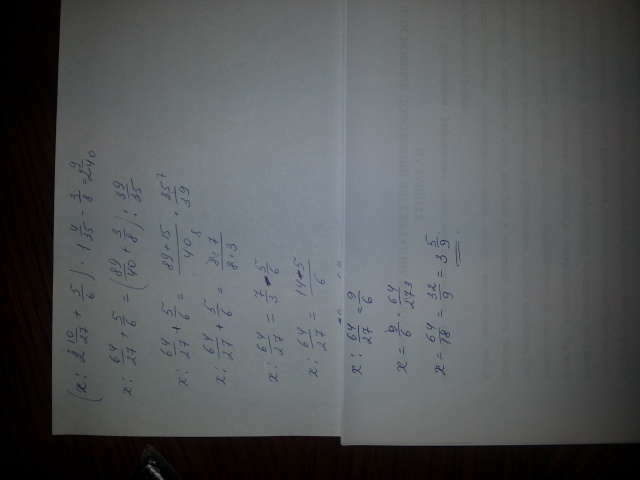 (x : 2 10/27 + 5/6) · 1 4/35 - 3/8 = 2 9/40
x : 64/27 + 5/6 = (89/40 + 3/8) : 39/35
x : 64/27 + 5/6 = (89+15)/40 · 35/39
x : 64/27 + 5/6 = 8·7/8·3
x : 64/27 = 7/3 - 5/6
x : 64/27 = (14-5)/6
x : 64/27 = 9/6
x = 9/6 · 64/27 3
x = 64/18 = 32/9 = 3 5/9